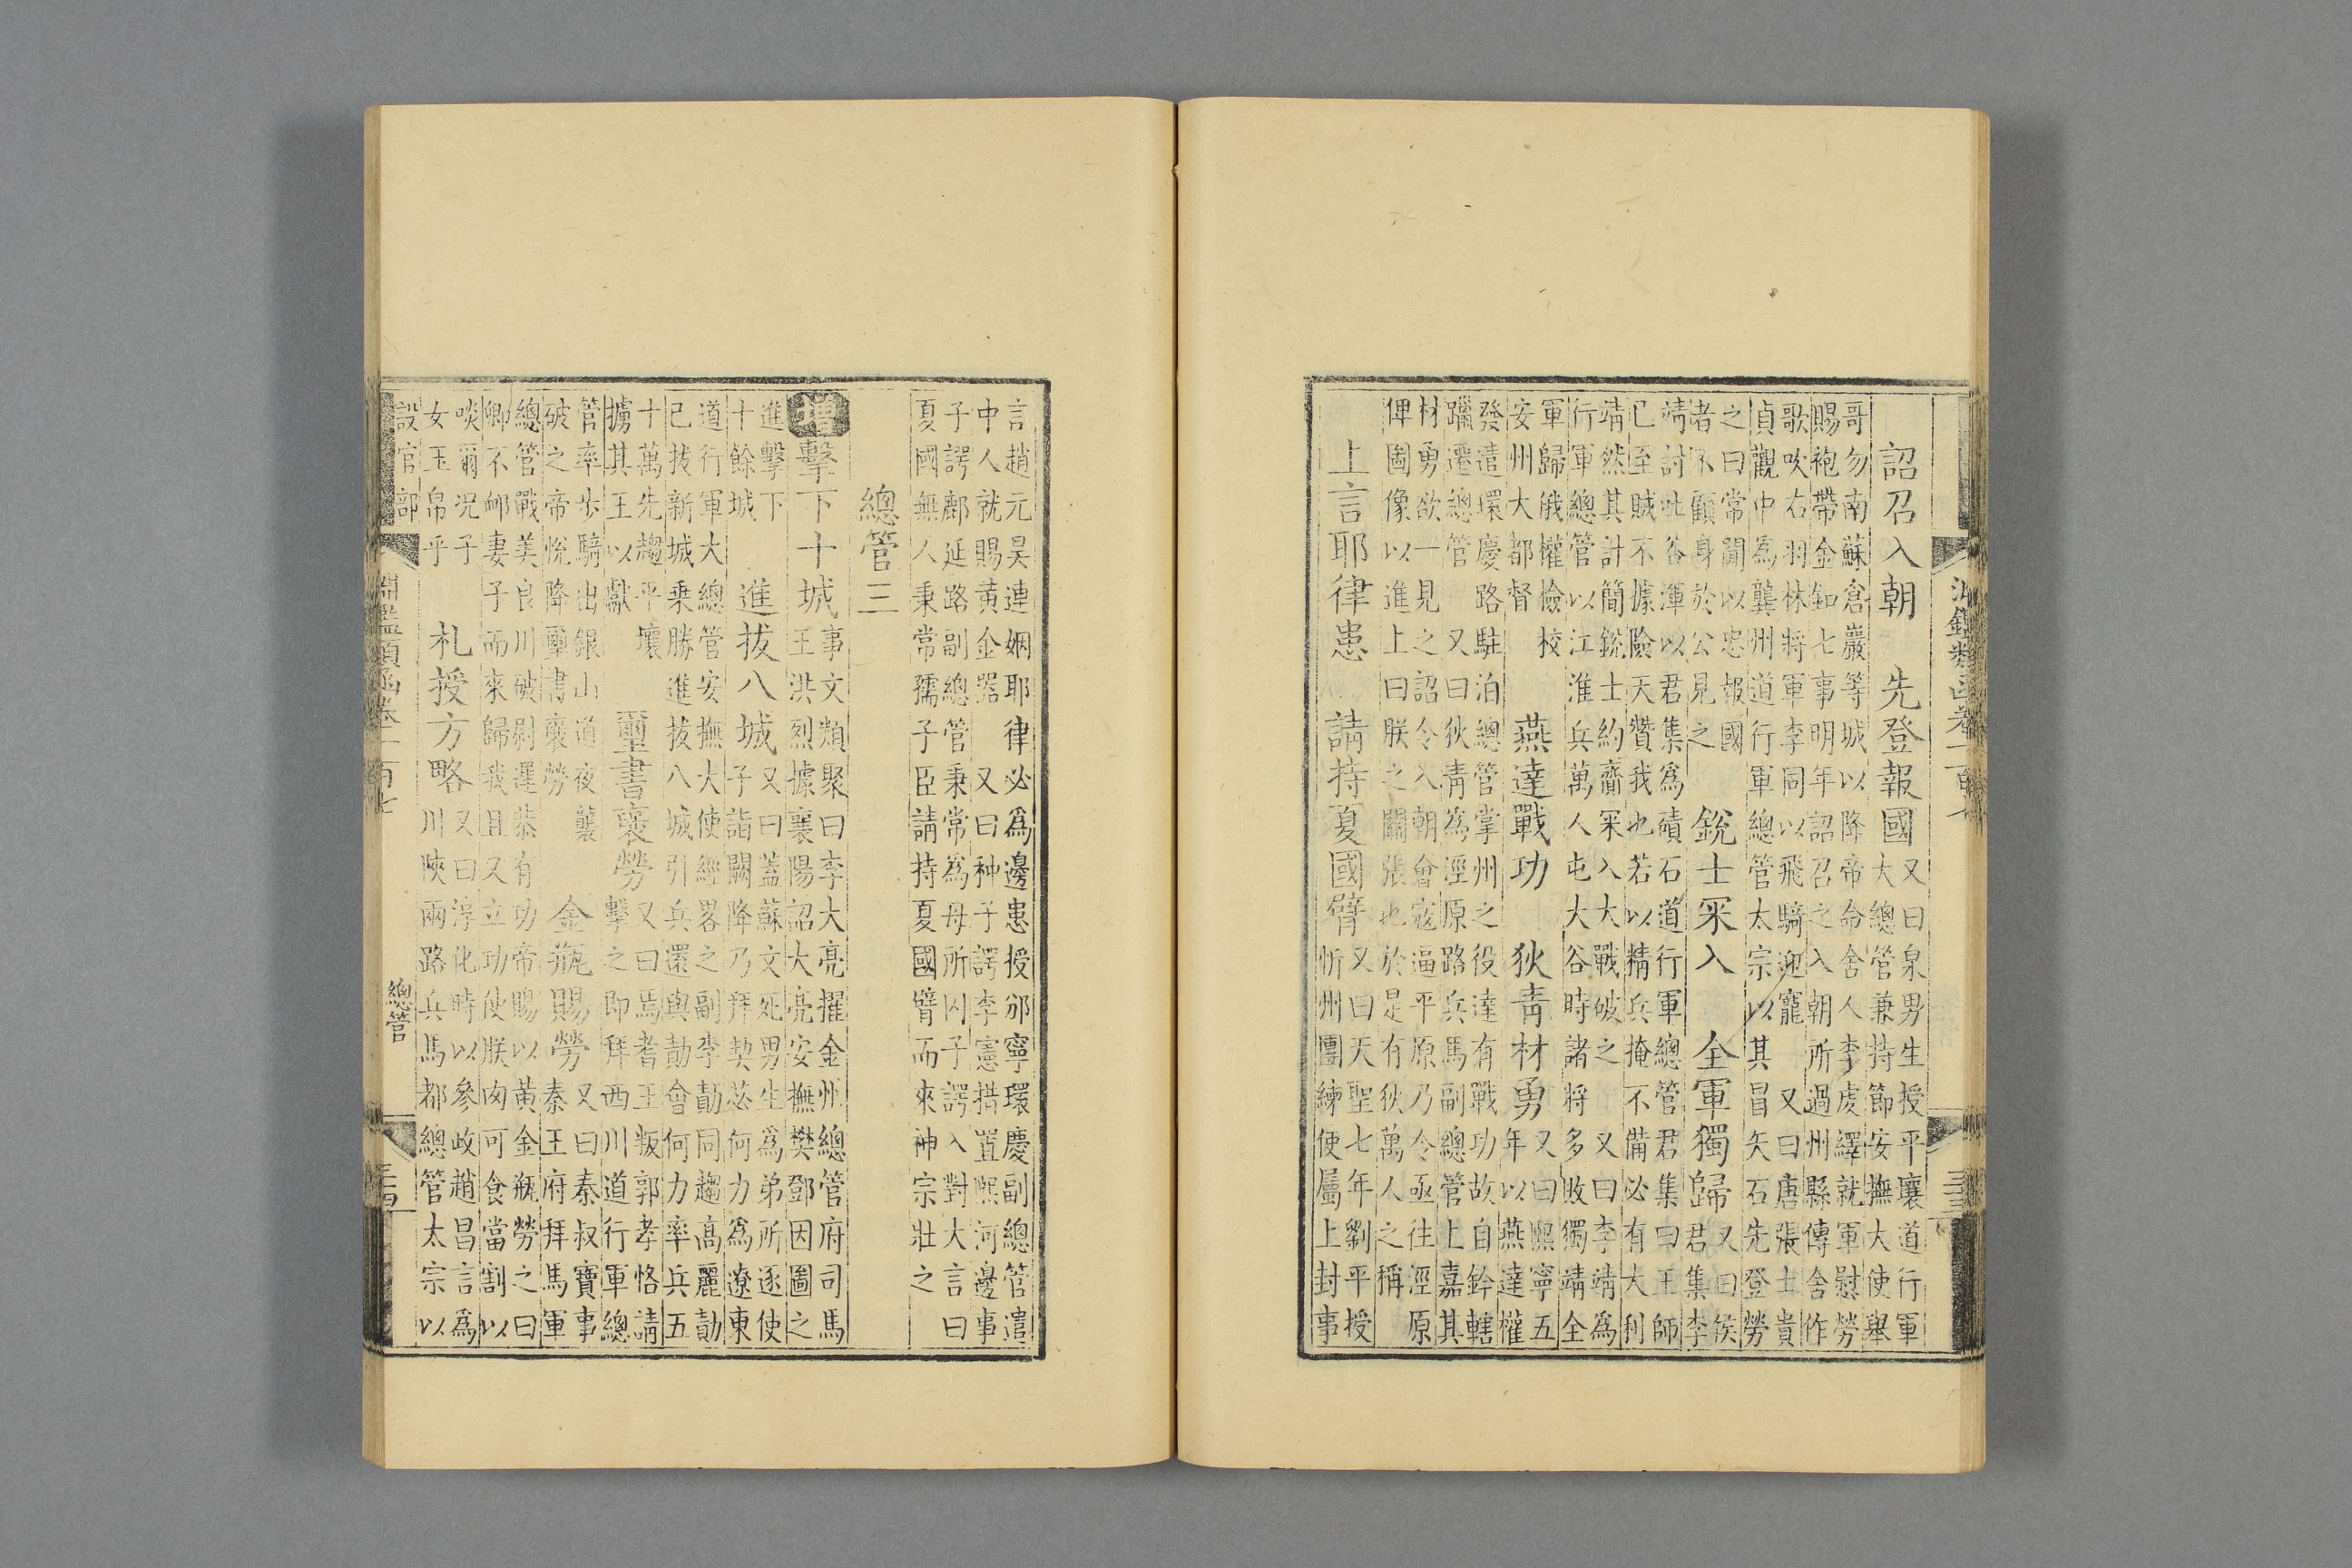 淵鑑類函卷一百七
詔召入朝　先登報國
又曰泉男生授平壤道行軍
大總管兼持節安撫大使舉
哥勿南蘇倉巖等城以降帝命舍人李虔繹就軍慰勞
賜袍帶金釦七事明年詔召之入朝所過州縣傳舍作
歌吹右羽林將軍李同以飛騎迎寵　又曰唐張士貴
貞觀中為龔州道行軍總管太宗以其冒矢石先登勞
之曰常聞以忠報國
者不顧身於公見之
銳士罙入　全軍獨歸
又曰侯
君集李
靖討吐谷渾以君集為磧石道行軍總管君集曰王師
已至賊不據險天贊我也若以精兵掩不備必有大利
靖然其計簡銳士約齎罙入大戰破之　又曰李靖為
行軍總管以江淮兵萬人屯大谷時諸將多敗獨靖全
軍歸俄權檢校
安州大都督
燕達戰功　狄青材勇
又曰熙寧五
年以燕達權
發遣環慶路駐泊總管掌州之役達有戰功故自鈐轄
躐遷總管　又曰狄青為涇原路兵馬副總管上嘉其
材勇欲一見之詔令入朝會寇逼平原乃令亟往涇原
俾圖像以進上曰朕之關張也於是有狄萬人之稱
上言耶律患　請持夏國臂
又曰天聖七年劉平授
忻州團練使屬上封事
言趙元昊連姻耶律必為邊患授邠寧環慶副總管遣
中人就賜黃金器　又曰种子諤李憲措置熙河邊事
子諤鄜延路副總管秉常為母所囚子諤入對大言曰
夏國無人秉常孺子臣請持夏國臂而來神宗壯之
總管三
增擊下十城
事文類聚曰李大亮擢金州總管府司馬
王洪烈據襄陽詔大亮安撫樊鄧因圖之
進擊下
十餘城
進拔八城
又曰蓋蘇文死男生為弟所逐使
子詣闕降乃拜契苾何力為遼東
道行軍大總管安撫大使經畧之副李勣同趨高麗勣
已拔新城乘勝進拔八城引兵還與勣會何力率兵五
十萬先趨平壤
擄其王以獻
璽書褒勞
又曰馬耆王叛郭孝恪請
擊之即拜西川道行軍總
管率步騎出銀山道夜襲
破之帝悅降璽書褒勞
金瓶賜勞
又曰秦叔寶事
秦王府拜馬軍
總管戰美良川破尉遲恭有功帝賜以黃金瓶勞之曰
卿不卹妻子而來歸我且又立功使朕肉可食當割以
啖爾況子
女玉帛乎
札授方略
又曰淳化時以參政趙昌言為
川陝兩路兵馬都總管太宗以
設官部
淵鑑類函卷一百七
總管
三十四